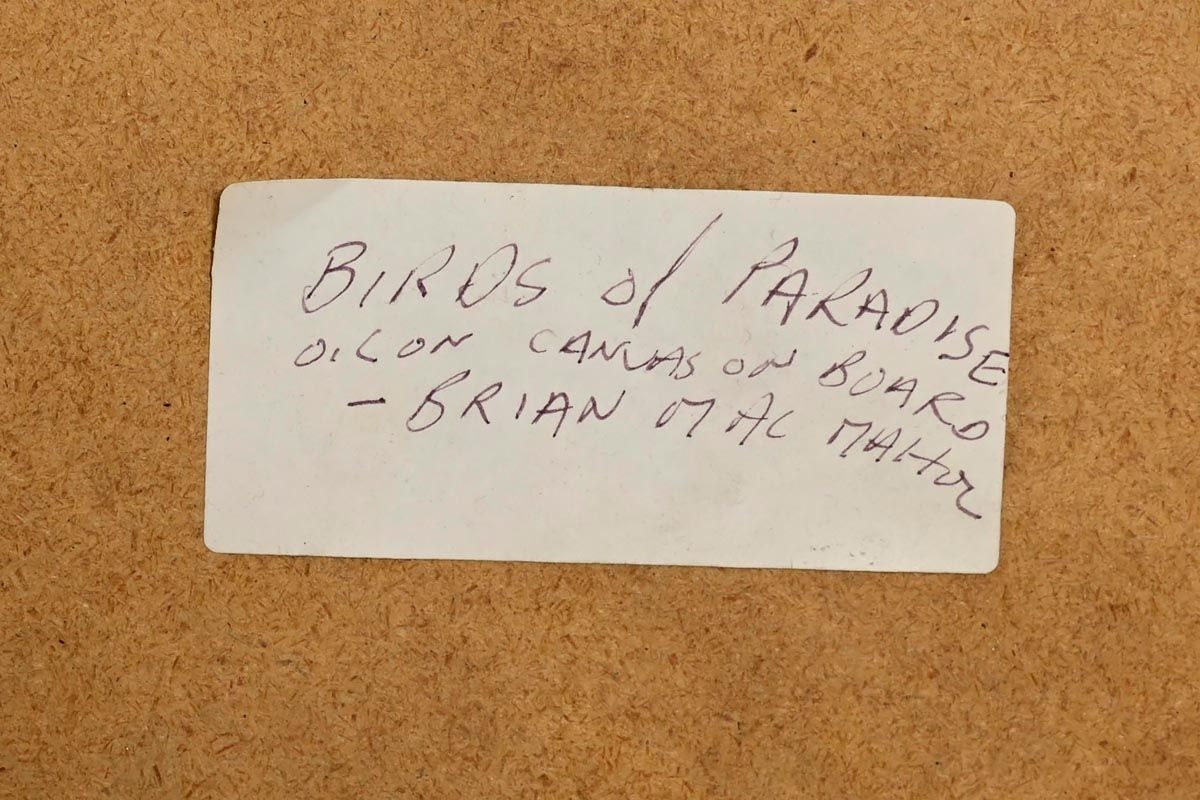 BIRDS of PARADISE
OIL ON CANVAS ON BOARD
- BRIAN MAC MAHON